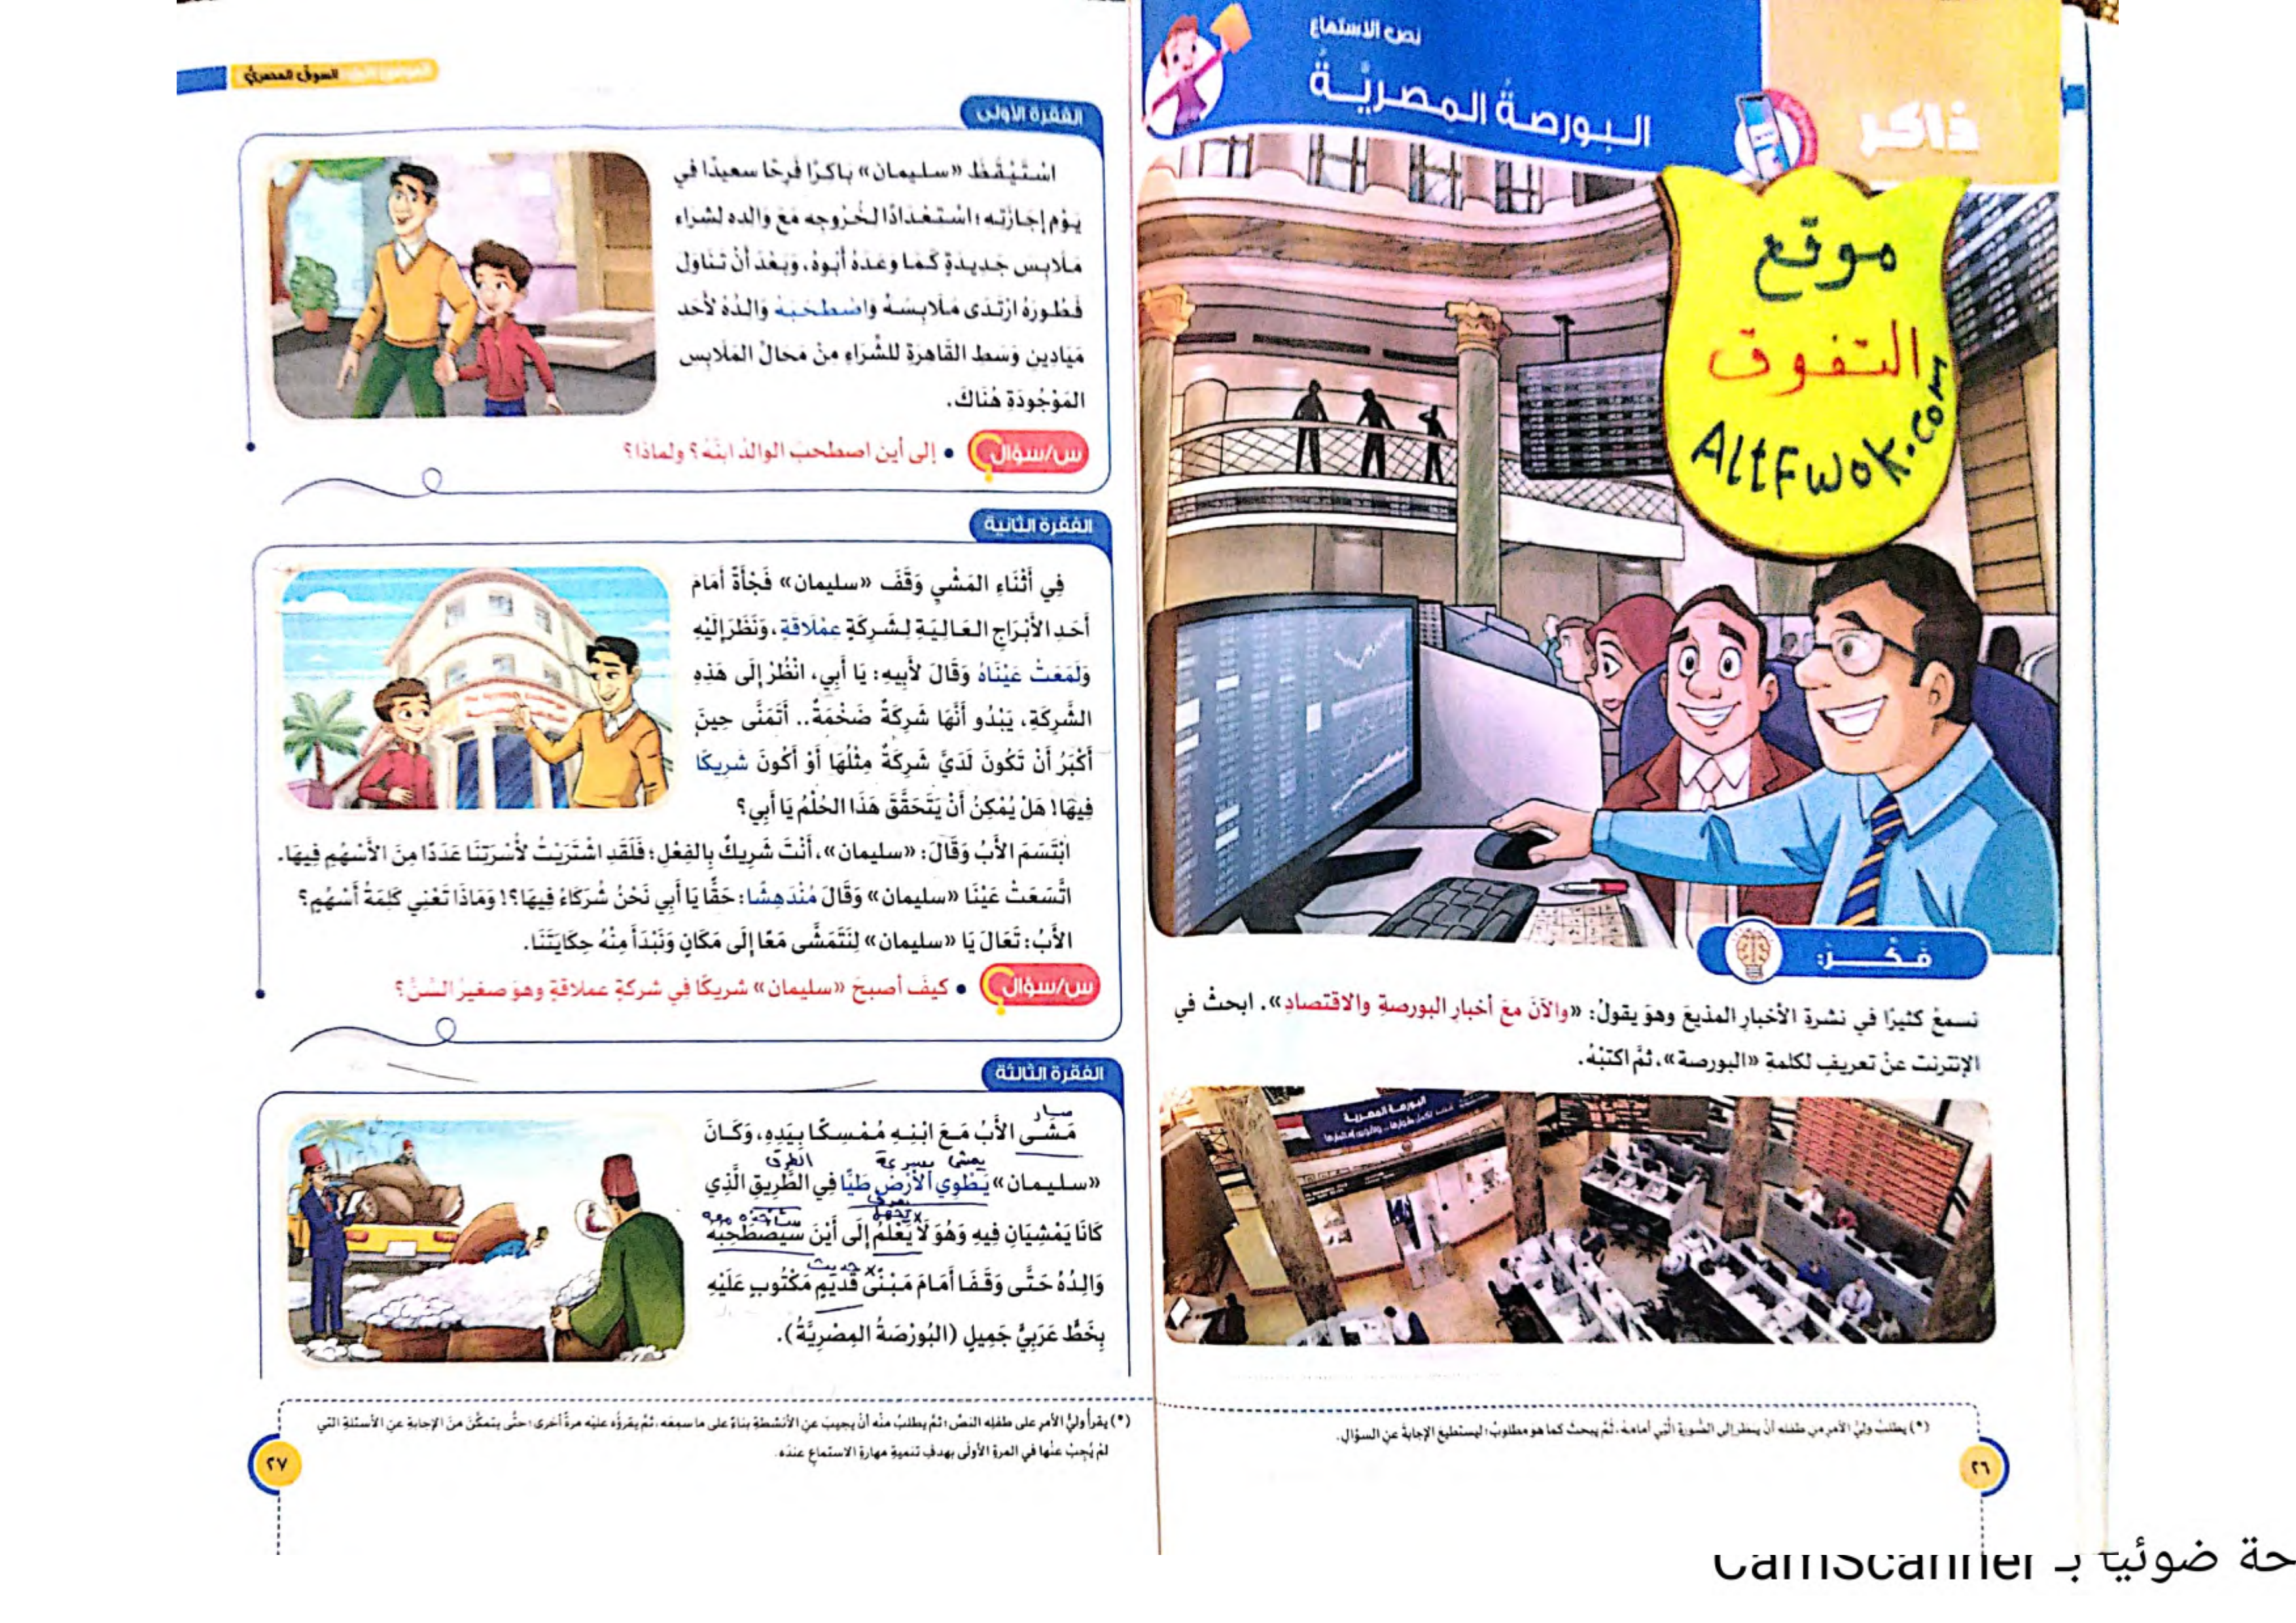 نص الاستماع
البورصةُ المِصريَّةُ
ذاكر
موقع
التفوق
ALtFwok.com
فَكِّرْ:
نسمعُ كثيرًا في نشرةِ الأخبارِ المذيعَ وهوَ يقولُ: «والآنَ معَ أخبارِ البورصةِ والاقتصادِ». ابحثْ في
الإنترنت عنْ تعريفٍ لكلمةِ «البورصة»، ثمَّ اكتبْهُ.
البورصة المصرية
(*) يطلبُ وليُّ الأمرِ من طفلِه أنْ ينظرَ إلى الصُّورةِ الَّتي أمامَهُ، ثُمَّ يبحث كما هو مطلوبٌ؛ ليستطيعَ الإجابةَ عنِ السؤالِ.
٢٦
السوق المصري
الفقرة الأولى
اسْتَيْقَظَ «سليمان» بَاكرًا فَرِحًا سعيدًا في
يَوْمِ إجَازَتِه؛ اسْتعْدَادًا لخُرْوجِه مَعَ وَالده لشراء
مَلَابِسَ جَديدَةٍ كَمَا وعَدَهُ أَبُوهُ، وَبَعْدَ أنْ تَنَاوَلَ
فَطُورَهُ ارْتَدَى مَلَابِسَهُ وَاصْطَحَبَهُ وَالدُهُ لأحَد
مَيَادِينِ وَسَطِ القَاهرَةِ للشِّرَاءِ مِنْ مَحَالِّ المَلَابِسِ
المَوْجُودَةِ هُنَاكَ.
س/سؤال • إلى أين اصطحبَ الوالدُ ابنَهُ؟ ولماذا؟
الفقرة الثانية
فِي أَثْنَاءِ المَشْيِ وَقَفَ «سليمان» فَجْأَةً أَمَامَ
أَحَدِ الأَبْرَاجِ العَالِيَةِ لِشَرِكَةٍ عِمْلَاقَةٍ، وَنَظَرَ إِلَيْهِ
وَلَمَعَتْ عَيْنَاهُ وَقَالَ لأَبِيهِ: يَا أَبِي، انْظُرْ إِلَى هَذِهِ
الشَّرِكَةِ، يَبْدُو أَنَّهَا شَرِكَةٌ ضَخْمَةٌ.. أَتَمَنَّى حِينَ
أَكْبَرُ أَنْ تَكُونَ لَدَيَّ شَرِكَةٌ مِثْلُهَا أَوْ أَكُونَ شَرِيكًا
فِيهَا! هَلْ يُمْكِنُ أَنْ يَتَحَقَّقَ هَذَا الحُلْمُ يَا أَبِي؟
ابْتَسَمَ الأَبُ وَقَالَ: «سليمان»، أَنْتَ شَرِيكٌ بِالفِعْلِ؛ فَلَقَدِ اشْتَرَيْتُ لأُسْرَتِنَا عَدَدًا مِنَ الأَسْهُمِ فِيهَا.
اتَّسَعَتْ عَيْنَا «سليمان» وَقَالَ مُنْدَهِشًا: حَقًّا يَا أَبِي نَحْنُ شُرَكَاءُ فِيهَا؟! وَمَاذَا تَعْنِي كَلِمَةُ أَسْهُمٍ؟
الأَبُ: تَعَالَ يَا «سليمان» لِنَتَمَشَّى مَعًا إِلَى مَكَانٍ وَنَبْدَأَ مِنْهُ حِكَايَتَنَا.
س/سؤال • كيفَ أصبحَ «سليمان» شريكًا في شركةٍ عملاقةٍ وهوَ صغيرُ السِّنِّ؟
الفقرة الثالثة
سار
مَشَى الأَبُ مَعَ ابْنِهِ مُمْسِكًا بِيَدِهِ، وَكَانَ
يمشى بسرعة الطرق
«سليمان» يَطْوِي الأَرْضَ طَيًّا فِي الطَّرِيقِ الَّذِي
يعرف x يجهل
كَانَا يَمْشِيَانِ فِيهِ وَهُوَ لَا يَعْلَمُ إِلَى أَيْنَ سَيَصْطَحِبُهُ
x حديث
وَالِدُهُ حَتَّى وَقَفَا أَمَامَ مَبْنًى قَدِيمٍ مَكْتُوبٍ عَلَيْهِ
بِخَطٍّ عَرَبِيٍّ جَمِيلٍ (البُورْصَةُ المِصْرِيَّةُ).
(*) يقرأُ وليُّ الأمرِ على طفلِه النصَّ؛ ثمَّ يطلبُ منْه أنْ يجيبَ عنِ الأنشطةِ بناءً على ما سمِعَه، ثمَّ يقرؤُه عليْه مرةً أخرى؛ حتَّى يتمكَّنَ منَ الإجابةِ عنِ الأسئلةِ التي
لمْ يُجِبْ عنْها في المرةِ الأولَى بهدفِ تنميةِ مهارةِ الاستماعِ عندَه.
٢٧
حة ضوئيا بـ CamScanner